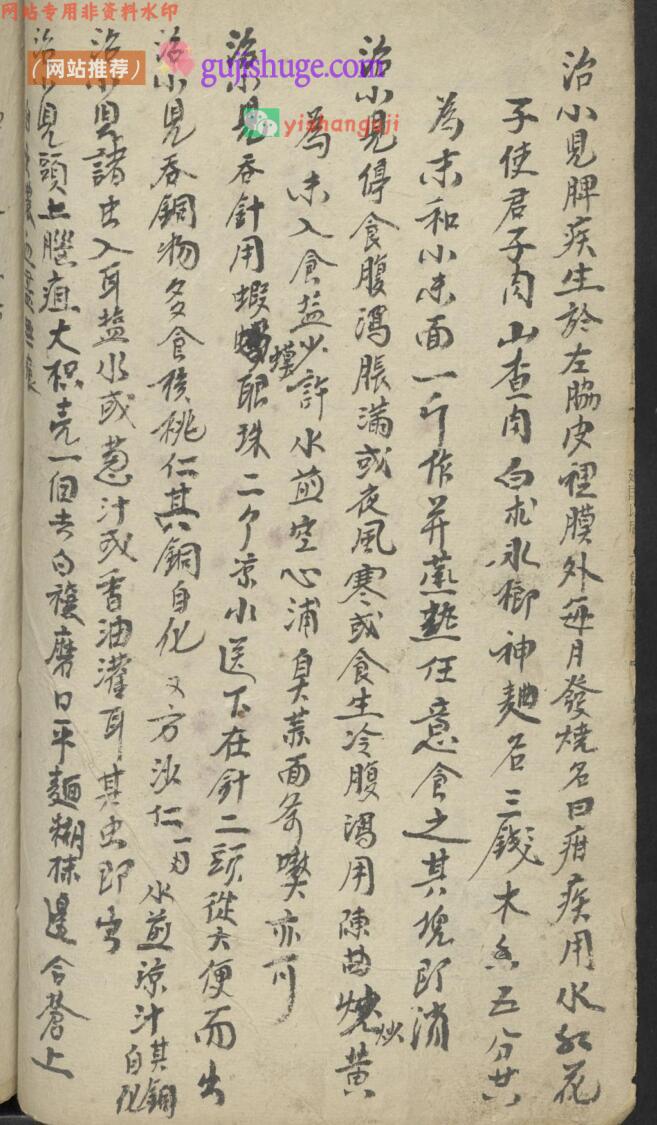 网站专用非资料水印
(网站推荐)
gujishuge.com
yishangguji
治小児脾疾生於左脇皮裡膜外每月發燒名曰疳疾用水红花
子使君子肉山查肉白朮水梹神麯各三錢木香五分共
為末和小末面一斤作并蒸熟任意食之其塊即消
治小児停食腹瀉脹滿或夜風寒或食生冷腹瀉用陳曲燒炒黄
為末入食盐少許水煎空心浦臭蒜面亦可
治小児吞針用蝦蟆眼珠二个凉水送下在針二頭從大便而出
治小児吞銅物多食核桃仁其銅自化 又方沙仁一两水煎凉汁其銅自化
治小児諸虫入耳盐水或葱汁或香油灌耳其虫即出
治小児頭上腦疽大枳壳一個去白穰磨口平麵糊抹邊合瘡上